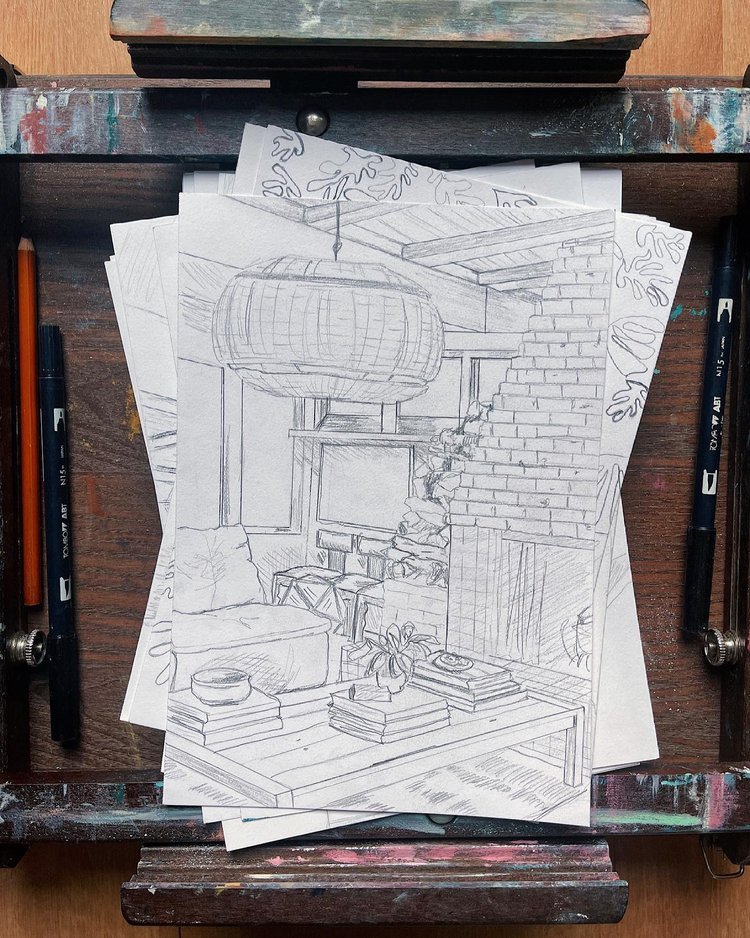 TOMBOW ABT
N15
TOMBOW ABT
N15